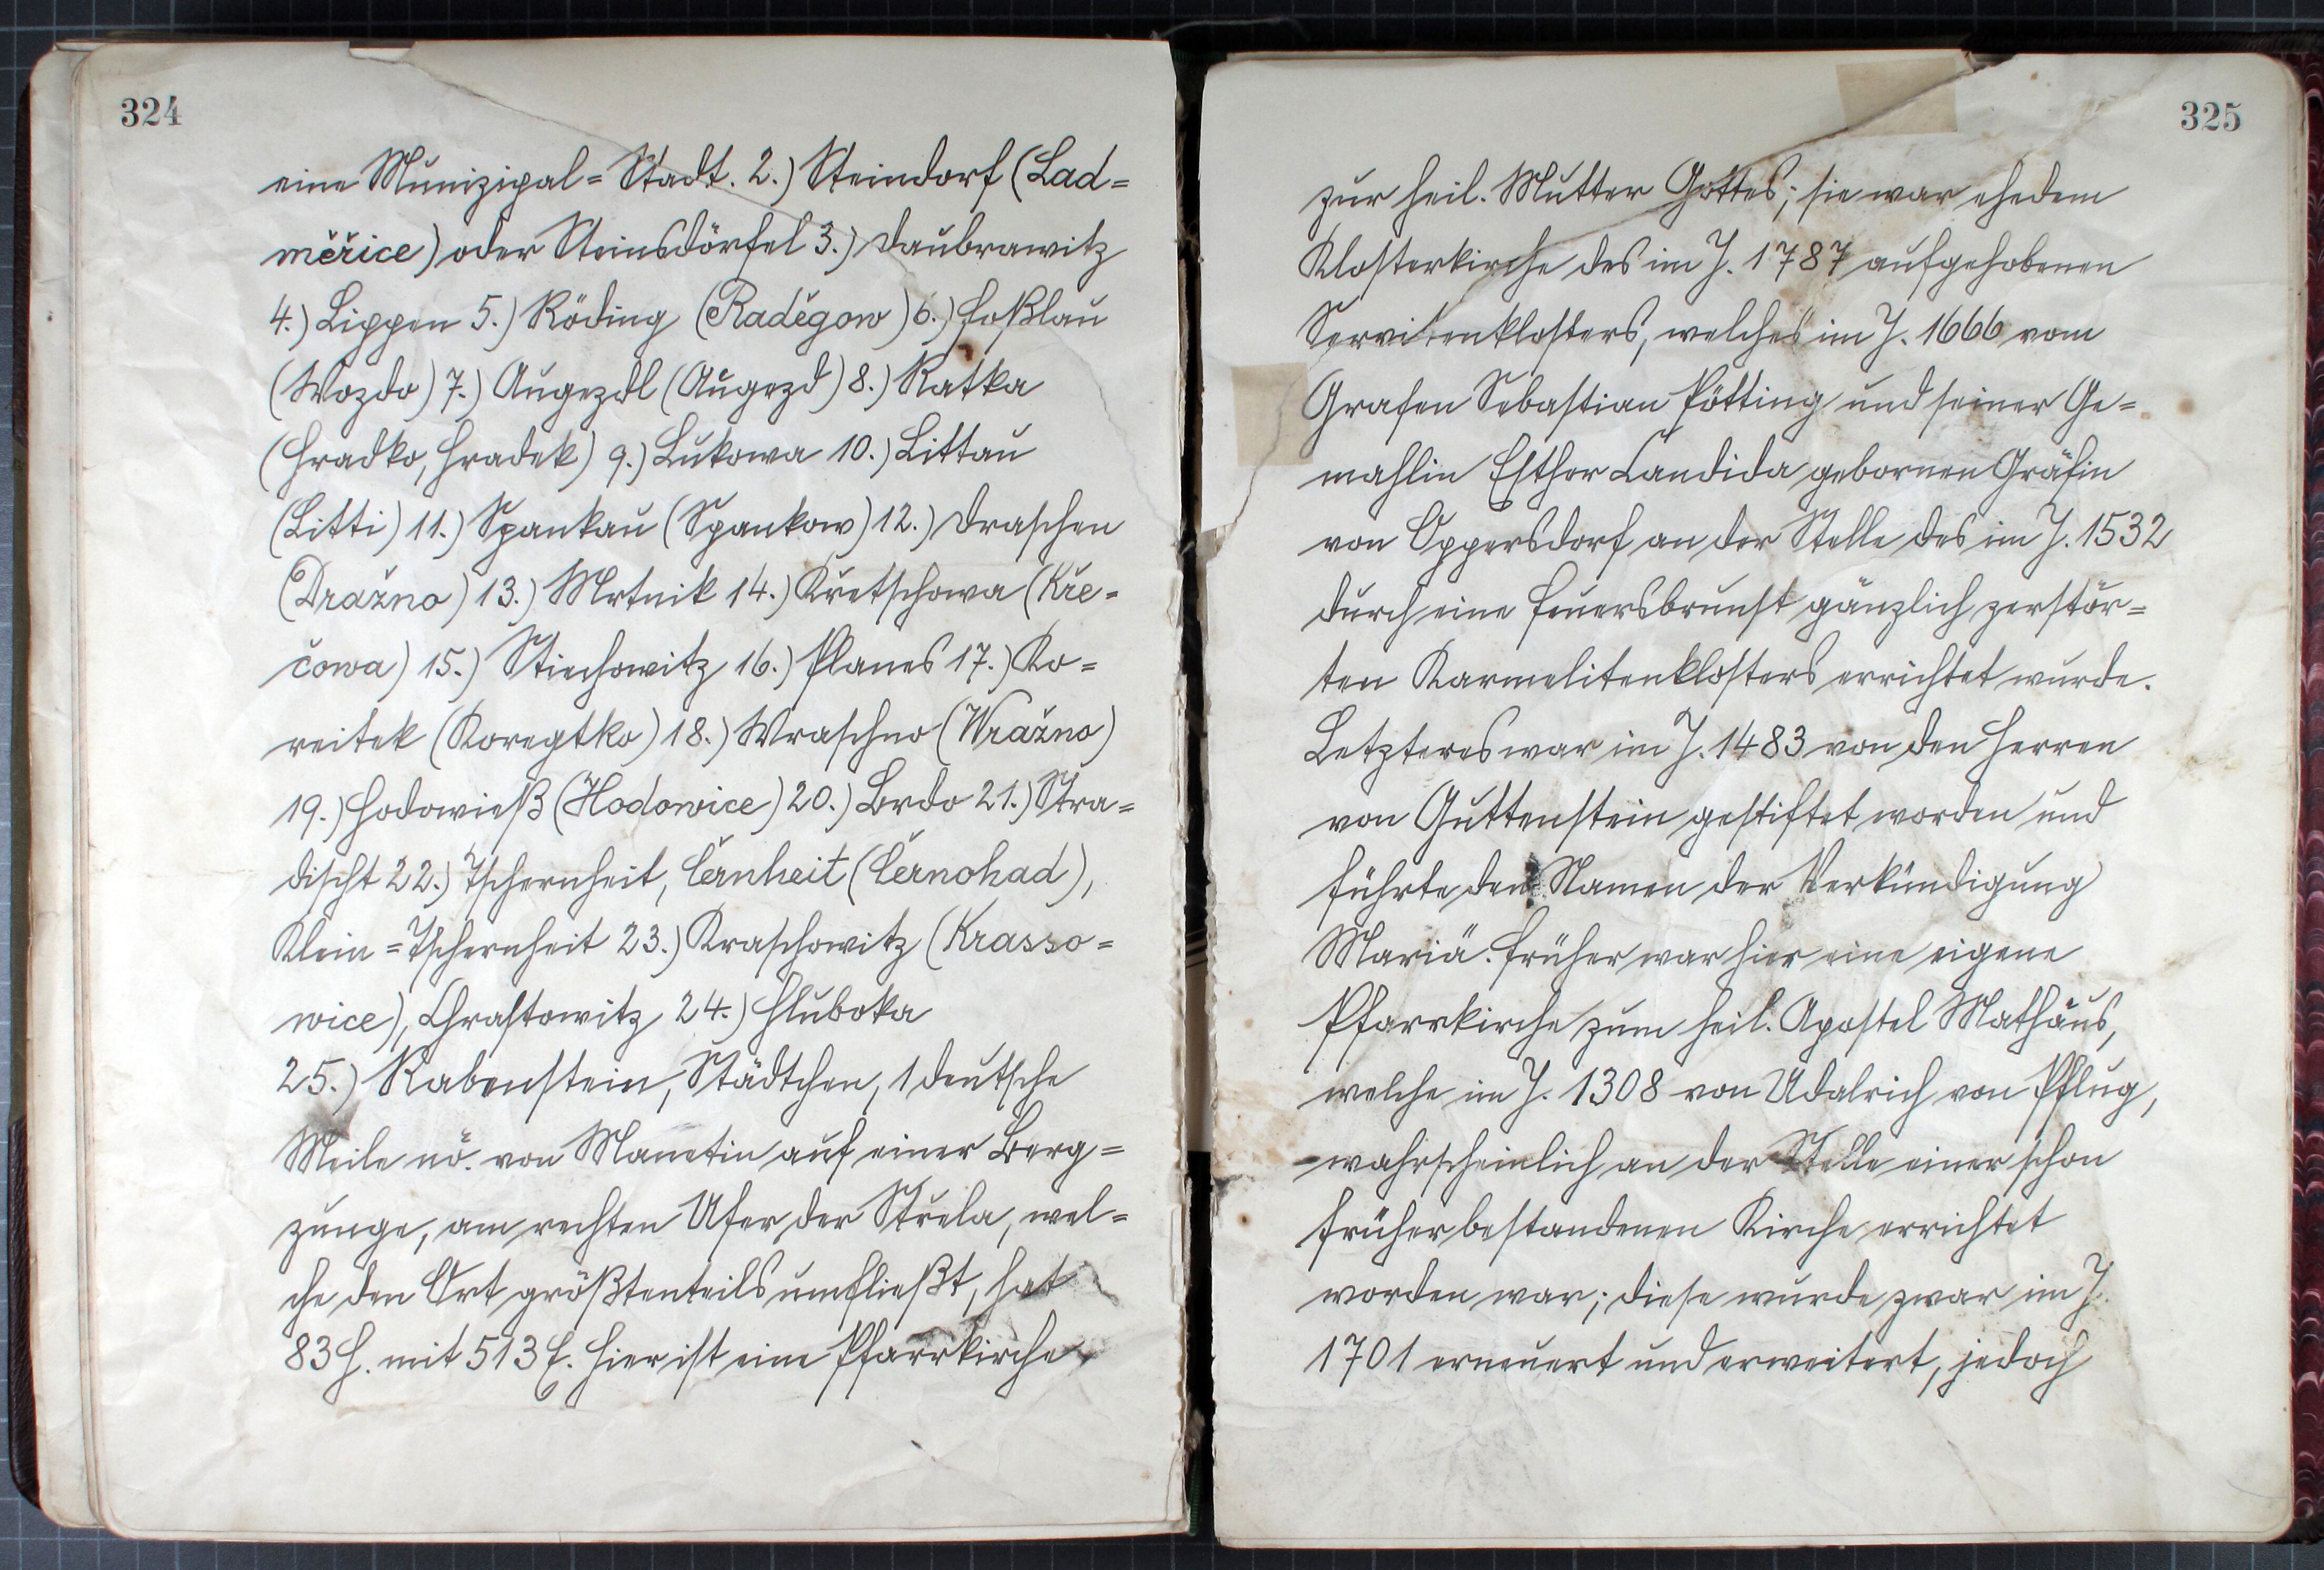 324
eine Munizipal=Stadt. 2.) Steindorf (Lad=
měřice) oder Steinsdörfel 3.) Daubrawitz
4.) Lippen 5.) Röding (Raděgow) 6.) Hoßlau
(Wozdo) 7.) Augezdl (Augezd) 8.) Ratka
(Hradko, Hradek) 9.) Lukowa 10.) Littau
(Litti) 11.) Spankau (Spankow) 12.) Draschen
(Dražno) 13.) Mrtnik 14.) Křetschowa (Kře=
čowa) 15.) Stiechowitz 16.) Planes 17.) Ko=
reitek (Koregtko) 18.) Wraschno (Wražno)
19.) Hodowieß (Hodowice) 20.) Brdo 21.) Stra=
discht 22.) Tschernheit, Černheit (Černohad),
Klein=Tschernheit 23.) Kraschowitz (Krasso=
wice), Chrastowitz 24.) Hluboka
25.) Rabenstein, Städtchen, 1 deutsche
Meile nö. von Manetin auf einer Berg=
zunge, am rechten Ufer der Střela, wel=
che den Ort größtenteils umfließt, hat
83 H. mit 513 E. Hier ist eine Pfarrkirche
325
zur heil. Mutter Gottes; sie war ehedem
Klosterkirche des im J. 1787 aufgehobenen
Servitenklosters, welches im J. 1666 vom
Grafen Sebastian Pötting und seiner Ge=
mahlin Esther Candida gebornen Gräfin
von Oppersdorf an der Stelle des im J. 1532
durch eine Feuersbrunst gänzlich zerstör=
ten Karmelitenklosters errichtet wurde.
Letzteres war im J. 1483 von den Herren
von Guttenstein gestiftet worden und
führte den Namen der Verkündigung
Mariä. Früher war hier eine eigene
Pfarrkirche zum heil. Apostel Mathäus,
welche im J. 1308 von Udalrich von Pflug,
wahrscheinlich an der Stelle einer schon
früher bestandenen Kirche errichtet
worden war; diese wurde zwar im J.
1701 erneuert und erweitert, jedoch